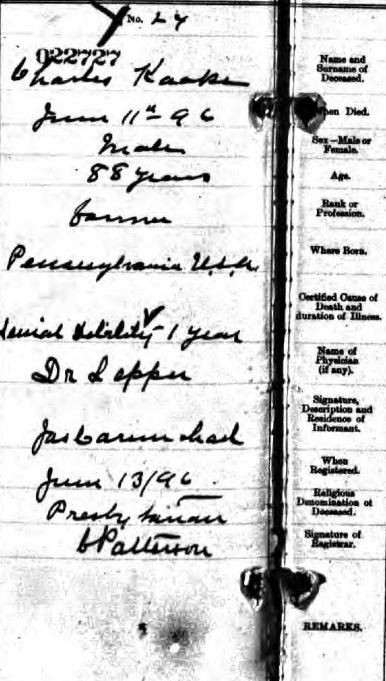 No. 27
022727
Charles Kaake
June 11th 96
Male
88 years
farmer
Pennsylvania U.S.A.
Senial debility 1 year
Dr Lepper
Jas Carmichael
June 13/96
Presbyterian
C Patterson
Name and
Surname of
Deceased.
When Died.
Sex—Male or
Female.
Age.
Rank or
Profession.
Where Born.
Certified Cause of
Death and
duration of Illness.
Name of
Physician
(if any).
Signature,
Description and
Residence of
Informant.
When
Registered.
Religious
Denomination of
Deceased.
Signature of
Registrar.
REMARKS.